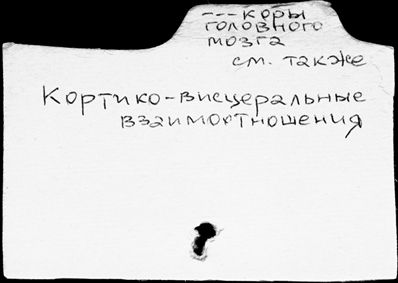 ---коры
головного
мозга
см. также
Кортико-висцеральные
взаимоотношения